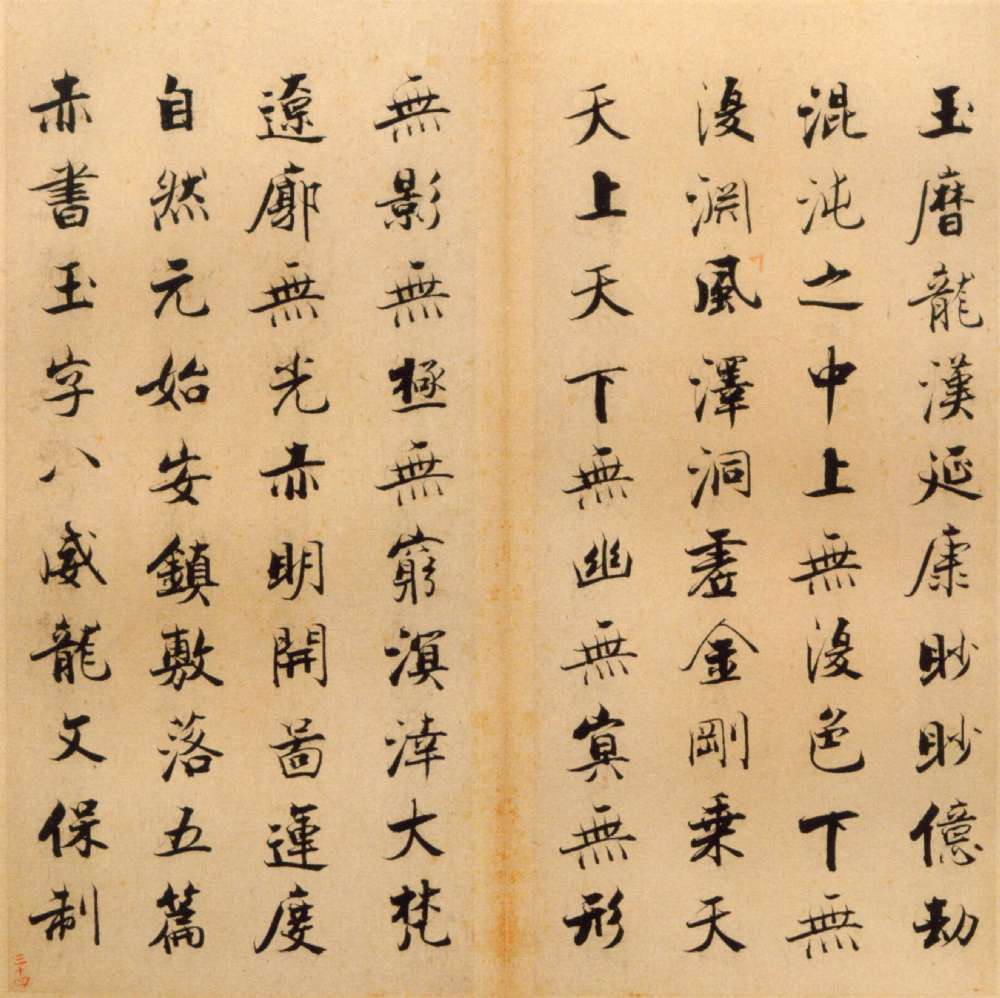 玉曆龍漢延康眇眇億劫
混沌之中上無復色下無
復淵風澤洞虛金剛乗天
天上天下無幽無冥無形
無影無極無窮溟涬大梵
遼廓無光赤明開啚運度
自然元始安鎮敷落五篇
赤書玉字八威龍文保制
三十四